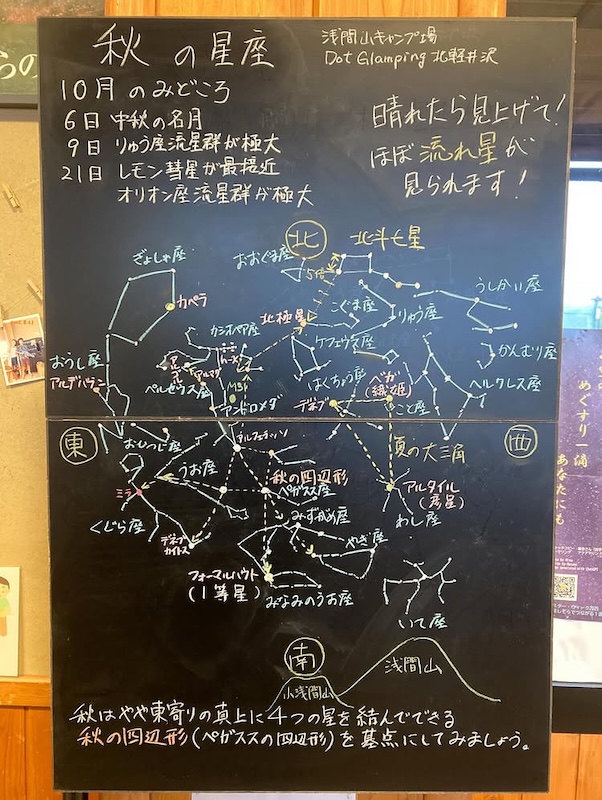 秋の星座
浅間山キャンプ場
Dot Glamping 北軽井沢
10月のみどころ
6日 中秋の名月
9日 りゅう座流星群が極大
21日 レモン彗星が最接近
オリオン座流星群が極大
晴れたら見上げて!
ほぼ流れ星が
見られます!
北
北斗七星
おおぐま座
5倍
ぎょしゃ座
カペラ
うしかい座
北極星
こぐま座
りゅう座
カシオペア座
ケフェウス座
かんむり座
おうし座
アルデバラン
ペルセウス座
M31
アンドロメダ
はくちょう座
デネブ
ベガ
(織姫)
こと座
ヘルクレス座
東
西
おひつじ座
アルフェラッツ
夏の大三角
うお座
秋の四辺形
ペガスス座
ミラ
アルタイル
(彦星)
みずがめ座
わし座
くじら座
デネブ
カイトス
やぎ座
フォーマルハウト
(1等星)
みなみのうお座
いて座
南
浅間山
小浅間山
秋はやや東寄りの真上に4つの星を結んでできる
秋の四辺形(ペガススの四辺形)を基点にしてみましょう。
めぐすり一滴
あなたにも